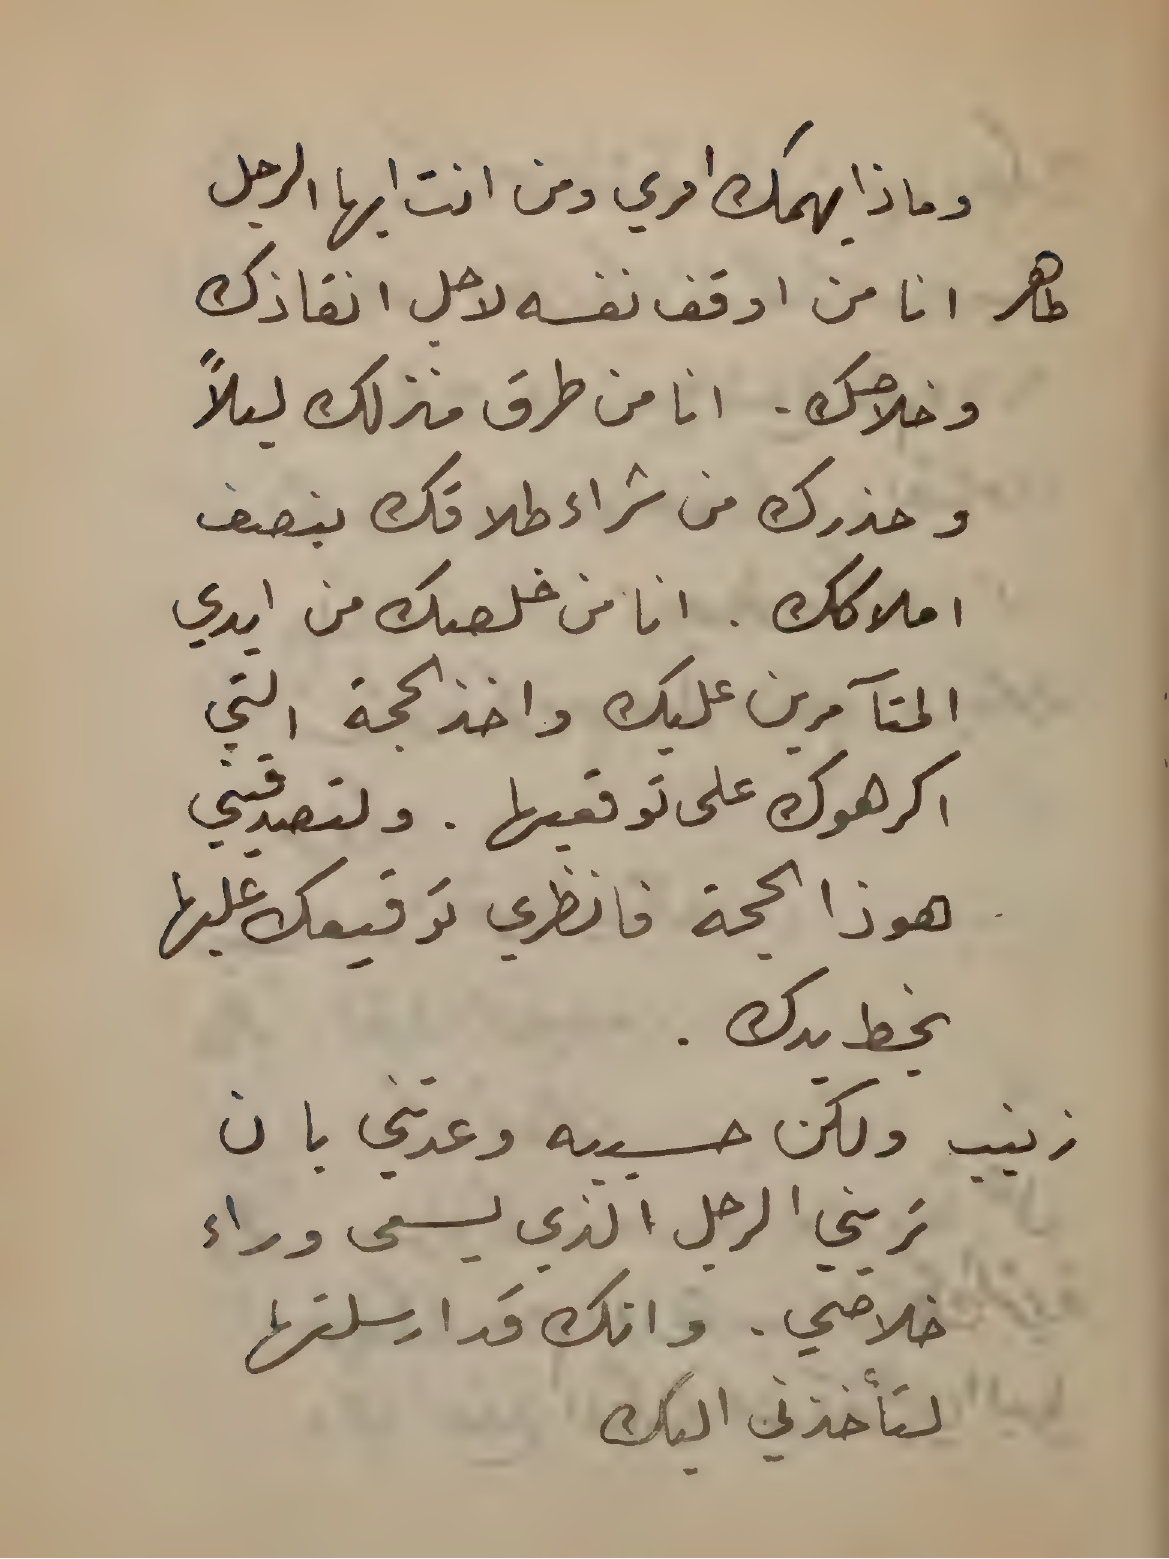 وماذا يهمك امري ومن انت ايها الرجل
طاهر انا من اوقف نفسه لاجل انقاذك
وخلاصك . انا من طرق منزلك ليلاً
وحذرك من شراء طلاقك بنصف
املاكك . انا من خلصك من ايدي
المتآمرين عليك واخذ الحجة التي
اكرهوك على توقيعها . ولتصدقيني
هوذا الحجة فانظري توقيعك عليها
بخط يدك .
زينب ولكن حسيبه وعدتني بان
تريني الرجل الذي يسعى وراء
خلاصي . وانك قد ارسلتها
لتأخذني اليك